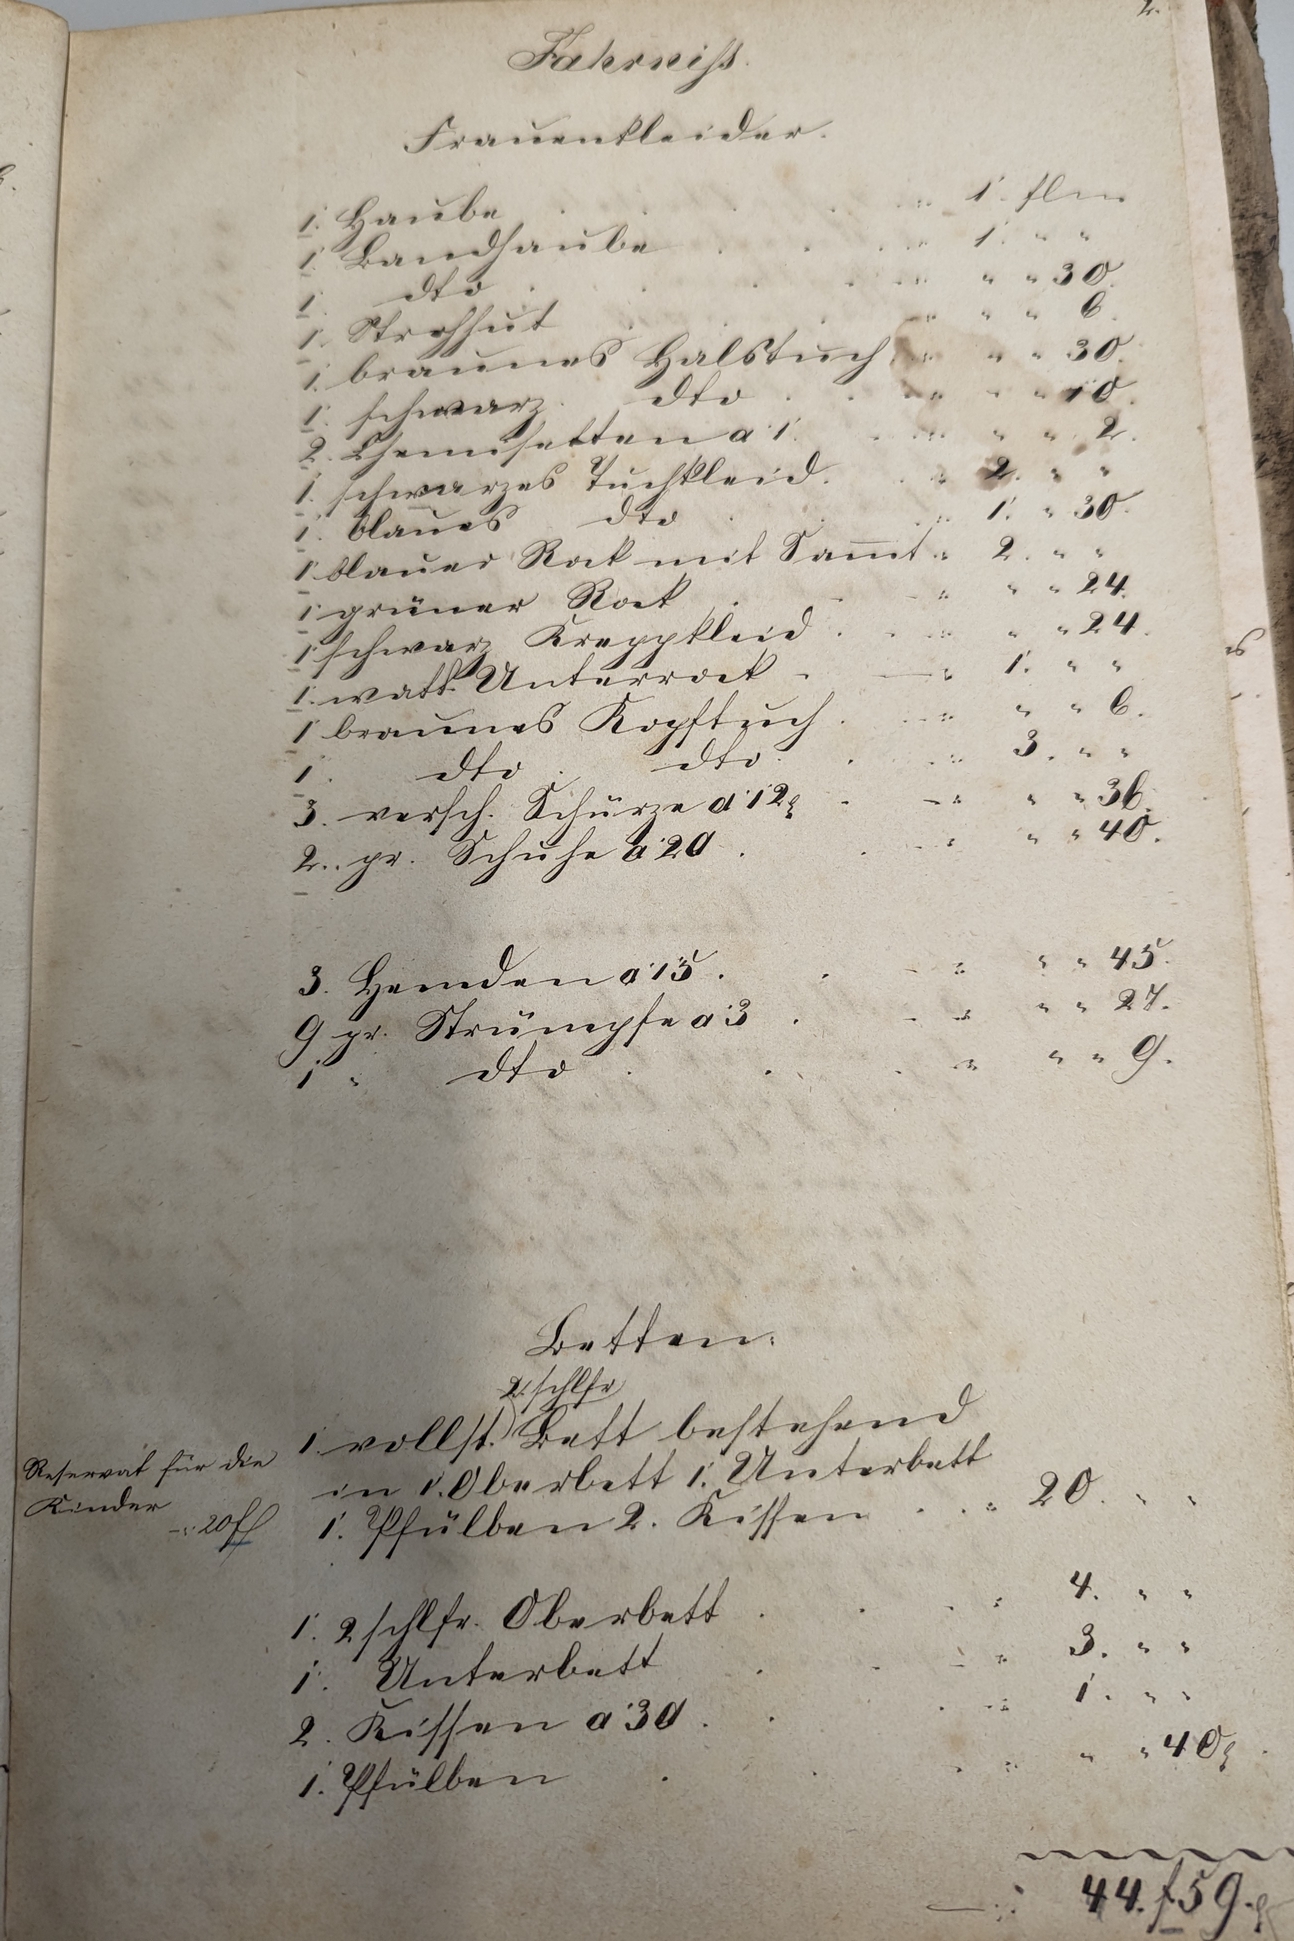 2.
Fahrniß.
Frauenkleider.
1. Haube . . . . 1. fl „
1. Bandhaube . . . . 1. „ „
1. dto . . . . „ „ 30.
1. Strohhut . . . „ „ 6.
1. braunes Halstuch „ „ 30.
1. schwarz. dto . . . „ „ 10.
2. Chemisetten a 1. . . . „ „ 2.
1. schwarzes Tuchkleid. . . 2. „ „
1. blaues dto . . . 1. „ 30.
1 blauer Rock mit Sam̄t . 2. „ „
1 grüner Rock . . . „ „ 24.
1 schwarz Kreppkleid . . . „ „ 24.
1. watt. Unterrock . . . 1. „ „
1 braunes Kopftuch . . . „ „ 6.
1. dto . dto . . . 3. „ „
3. versch. Schürze a 12 . . . „ „ 36.
2. pr. Schuhe a 20 . . . „ „ 40.
3. Hemden a 15 . . . „ „ 45.
9 pr. Strümpfe a 3 . . . „ „ 27.
1 „ dto . . . „ „ 9.
Betten.
2 schlfr
1. vollst. Bett bestehend
in 1. Oberbett 1. Unterbett
1. Pfülben 2. Kissen . . . 20. „ „
Reservat für die
Kinder
20 f
1. 2 schlfr. Oberbett . . . 4. „ „
1. Unterbett . . . 3. „ „
2. Kissen a 30 . . . 1. „ „
1. Pfülben . . . „ „ 40
44. f 59.